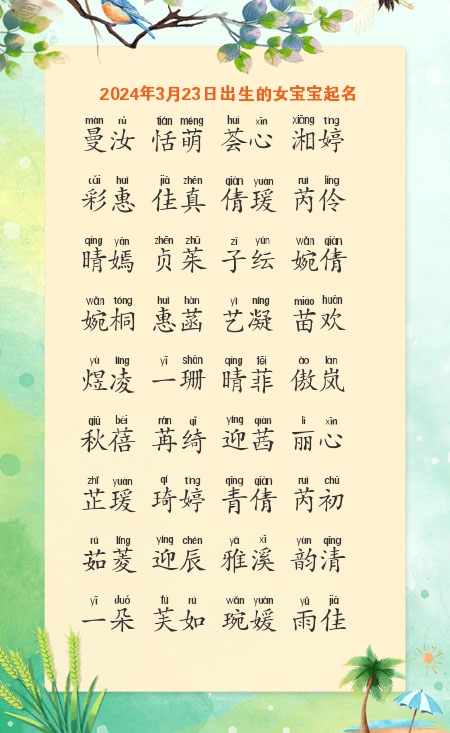 2024年3月23日出生的女宝宝起名
màn rǔ tián méng huì xīn xiāng tíng
曼汝 恬萌 荟心 湘婷
cǎi huì jiā zhēn qiàn yuàn ruì líng
彩惠 佳真 倩瑗 芮伶
qíng yān zhēn zhū zǐ yún wǎn qiàn
晴嫣 贞茱 子纭 婉倩
wǎn tóng huì hàn yì níng miáo huān
婉桐 惠菡 艺凝 苗欢
yù líng yī shān qíng fēi ào lán
煜凌 一珊 晴菲 傲岚
qiū bèi rǎn qǐ yíng qiàn lì xīn
秋蓓 苒绮 迎茜 丽心
zhǐ yuàn qí tíng qīng qiàn ruì chū
芷瑗 琦婷 青倩 芮初
rú líng yíng chén yǎ xī yùn qīng
茹菱 迎辰 雅溪 韵清
yī duǒ fú rú wǎn yuàn yǔ jiā
一朵 芙如 琬媛 雨佳